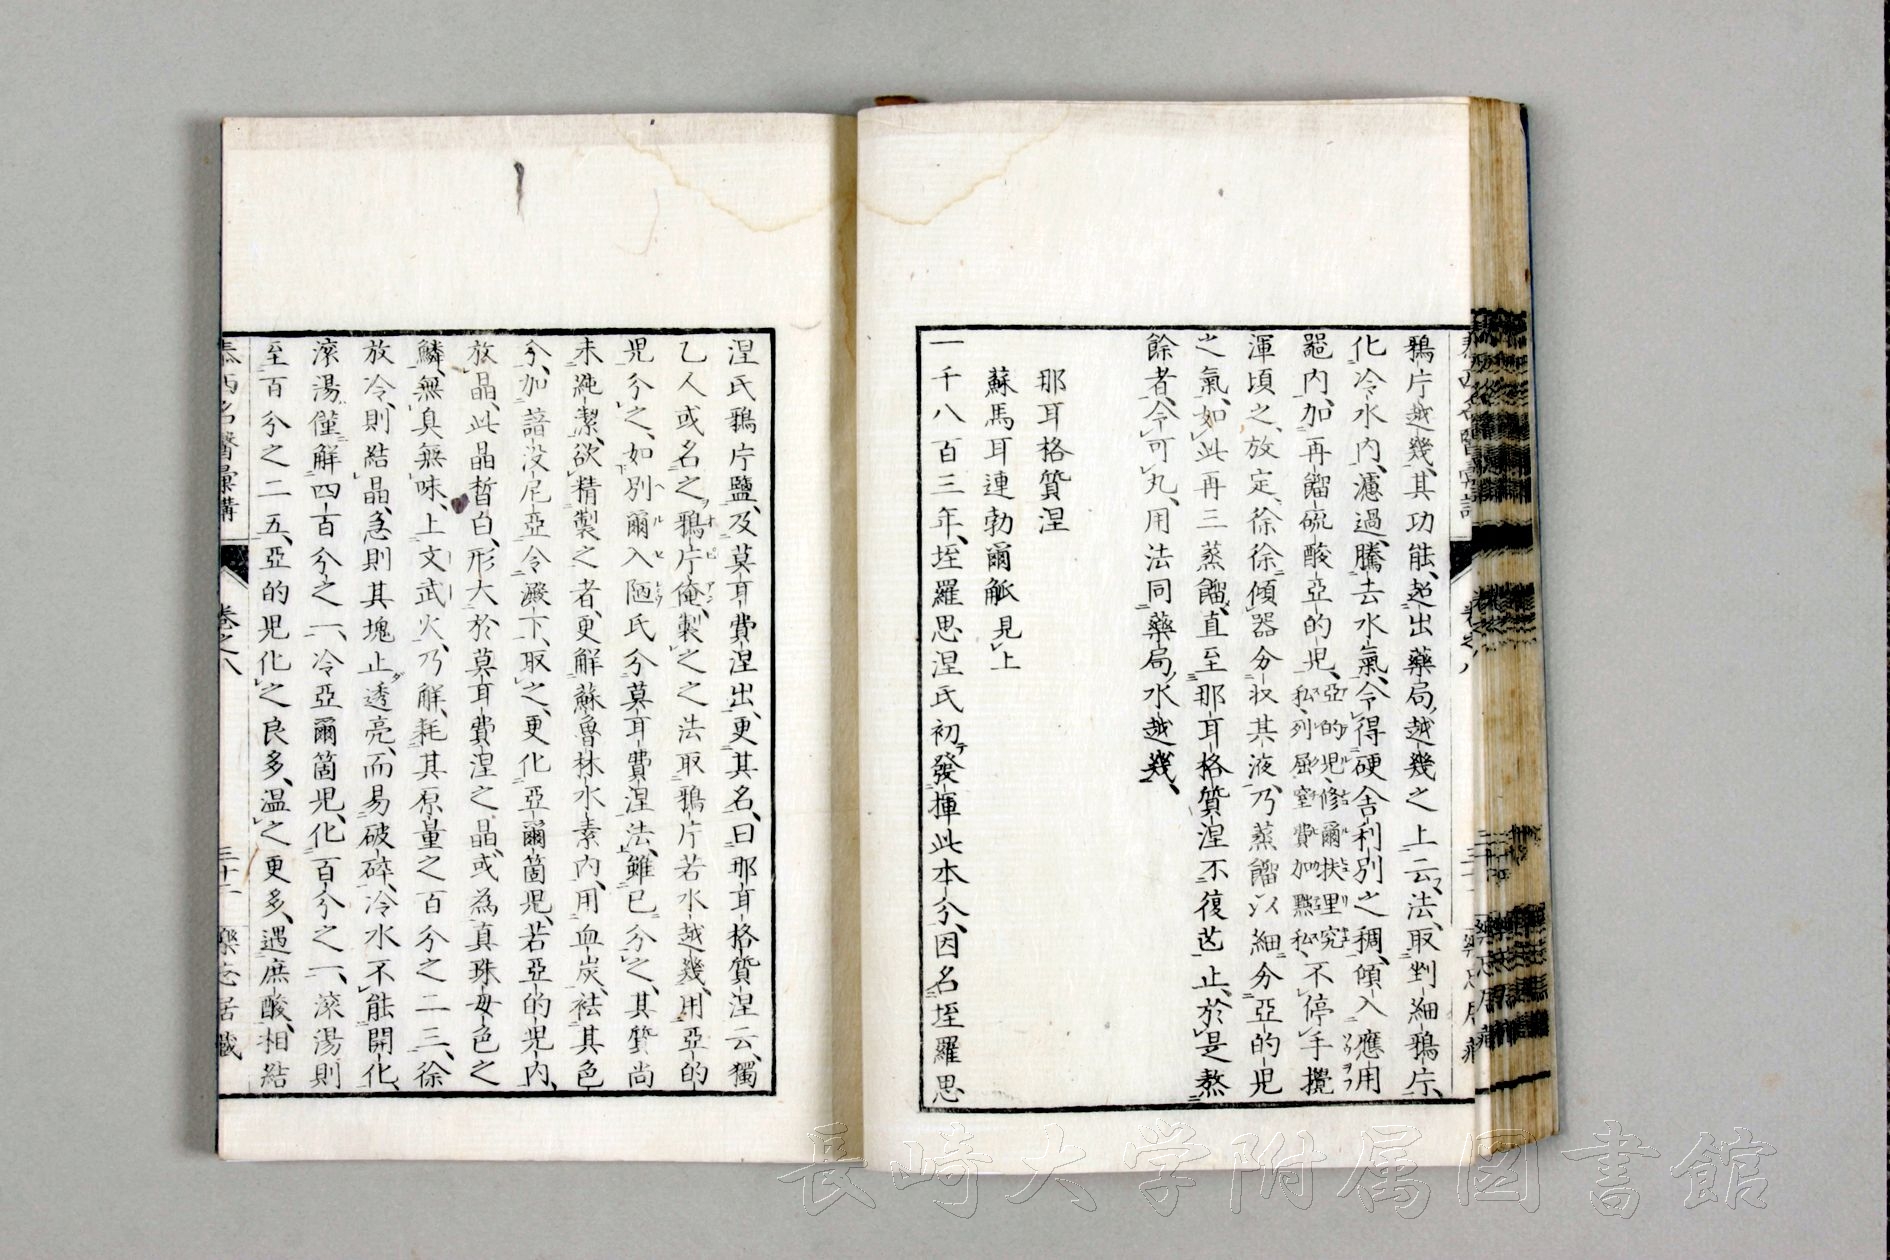 鴉片越幾其功能超出藥局越幾之上云法取剉細鴉片
化冷水内濾過騰去水氣令得硬舎利別之稠傾入應用
噐内加再餾硫酸亞的児亞的児修爾扶里究
私列屈窒費加黙私不停手攪
渾頃之放定徐徐傾器分収其液乃蒸餾以細分亞的児
之氣如此再三蒸餾直至那耳格質涅不復迯止於是熬
餘者令可丸用法同藥局水越幾
那耳格質涅
蘇馬耳連勃爾觚見上
一千八百三年垤羅思涅氏初發揮此本分因名垤羅思
涅氏鴉片鹽及莫耳費涅出更其名曰那耳格質涅云獨
乙人或名之鴉片俺製之之法取鴉片若水越幾用亞的
児分之如別爾入陋氏分莫耳費涅法雖已分之其質尚
未純潔欲精製之者更解蘇魯林水素内用血炭袪其色
分加諳没尼亞令澱下取之更化亞爾箇児若亞的児内
放晶此晶晢白形大於莫耳費涅之晶或為真珠母色之
鱗無臭無味上文武火乃解耗其原量之百分之二三徐
放冷則結晶急則其塊止透亮而易破碎冷水不能開化
滾湯僅解四百分之一冷亞爾箇児化百分之一滾湯則
至百分之二五亞的児化之良多温之更多遇庶酸相結
泰西名醫彙講
卷之八
三十二
樂志居藏
長崎大学附属図書館